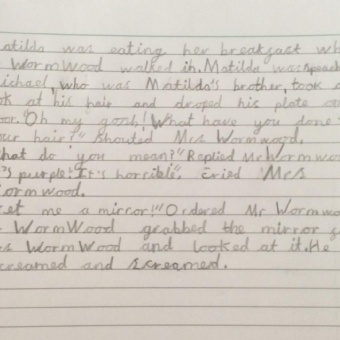 atilda was eating her breakfast wh
WormWood walked in. Matilda was speach
ichael, who was Matilda's brother, took a
ok at his hair and droped his plate on
oor. Oh my gosh! What have you done t
our hair?" shouted Mrs Wormwood.
hat do you mean?" Replied Mr Wormwo
t's purple! It's horrible", cried Mrs
ormwood.
et me a mirror!" Ordered Mr Wormwo
WormWood grabbed the mirror
s WormWood and looked at it. He
creamed and screamed.